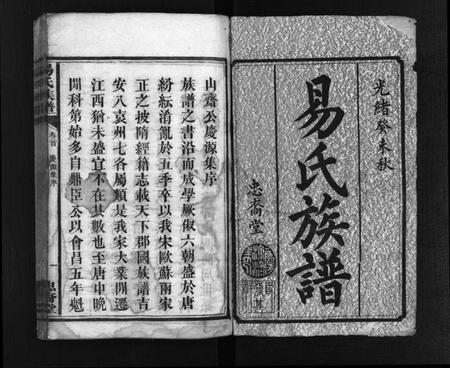 光緒癸未秋
易氏族譜
忠斎堂
山齋公慶源集序
族譜之書沿而成學厥俶六朝盛於唐
紛紜淆亂於五季卒以我宋歐蘇兩家
正之披隋經籍志載天下郡國族譜吉
安八袁州七各屬類是我家大業間遷
江西猶未盛宜不在其數也至唐中晩
開科第始多自鼎臣公以會昌五年魁
易氏族譜
卷首
慶源集序
一